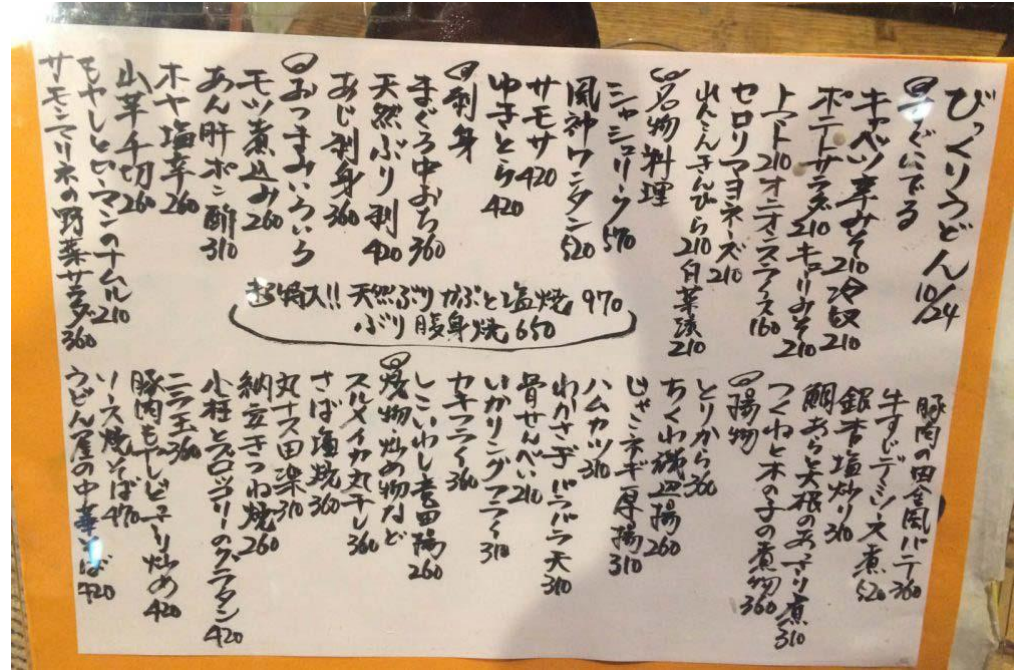 びっくりうどん 10/24
すぐにでる
キャベツ辛みそ210 冷奴210
ポテトサラダ210 キュウリみそ210
トマト210 オニオンスライス160
セロリマヨネーズ210
れんこんきんぴら210 白菜漬210
名物料理
シャシュリック570
風神ワンタン520
サモサ420
ゆきとら420
刺身
まぐろ中おち360
天然ぶり刺420
あじ刺身360
おつまみいろいろ
モツ煮込み260
あん肝ポン酢310
ホヤ塩辛260
山芋千切260
モヤシとピーマンのナムル210
サーモンマリネの野菜サラダ360
超特大!! 天然ぶりかぶと塩焼970
ぶり腹身焼650
豚肉の田舎風パテ360
牛すじデミソース煮520
銀杏塩炒り310
鯛あらと大根のあっさり煮310
つくねと木の子の煮物360
揚物
とりから360
ちくわ磯辺揚260
じゃこネギ厚揚310
ハムカツ310
わかさぎバラバラ天310
骨せんべい210
いかリングフライ310
カキフライ360
しこいわし竜田揚260
焼物炒め物など
スルメイカ丸干し360
さば塩焼360
丸ナス田楽310
納豆きつね焼260
小柱とブロッコリーのグラタン420
ニラ玉360
豚肉もやしピリ辛炒め420
ソース焼そば470
うどん屋の中華そば420